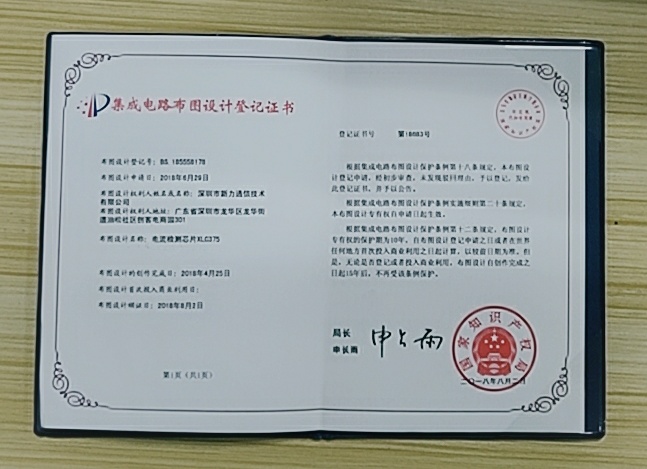 集成电路布图设计登记证书
布图设计登记号：BS. 185558178
布图设计申请日：2018年6月29日
布图设计权利人姓名或名称：深圳市新力通信技术
有限公司
布图设计权利人地址：广东省深圳市龙华区龙华街
道油松社区创客电商园301
布图设计名称：电流检测芯片XLC375
布图设计的创作完成日：2018年4月25日
布图设计首次投入商业利用日：
布图设计颁证日：2018年8月2日
第1页（共1页）
登记证书号 第18683号
根据集成电路布图设计保护条例第十八条规定，本布图设
计登记申请，经初步审查，未发现驳回理由，予以登记，发给
此登记证书，并予以公告。
根据集成电路布图设计保护条例实施细则第二十条规定，
本布图设计专有权自申请日起生效。
根据集成电路布图设计保护条例第十二条规定，布图设计
专有权的保护期为10年，自布图设计登记申请之日或者在世界
任何地方首次投入商业利用之日起计算，以较前日期为准。但
是，无论是否登记或者投入商业利用，布图设计自创作完成之
日起15年后，不再受该条例保护。
局长
申长雨
申长雨
国家知识产权局
二〇一八年八月二日